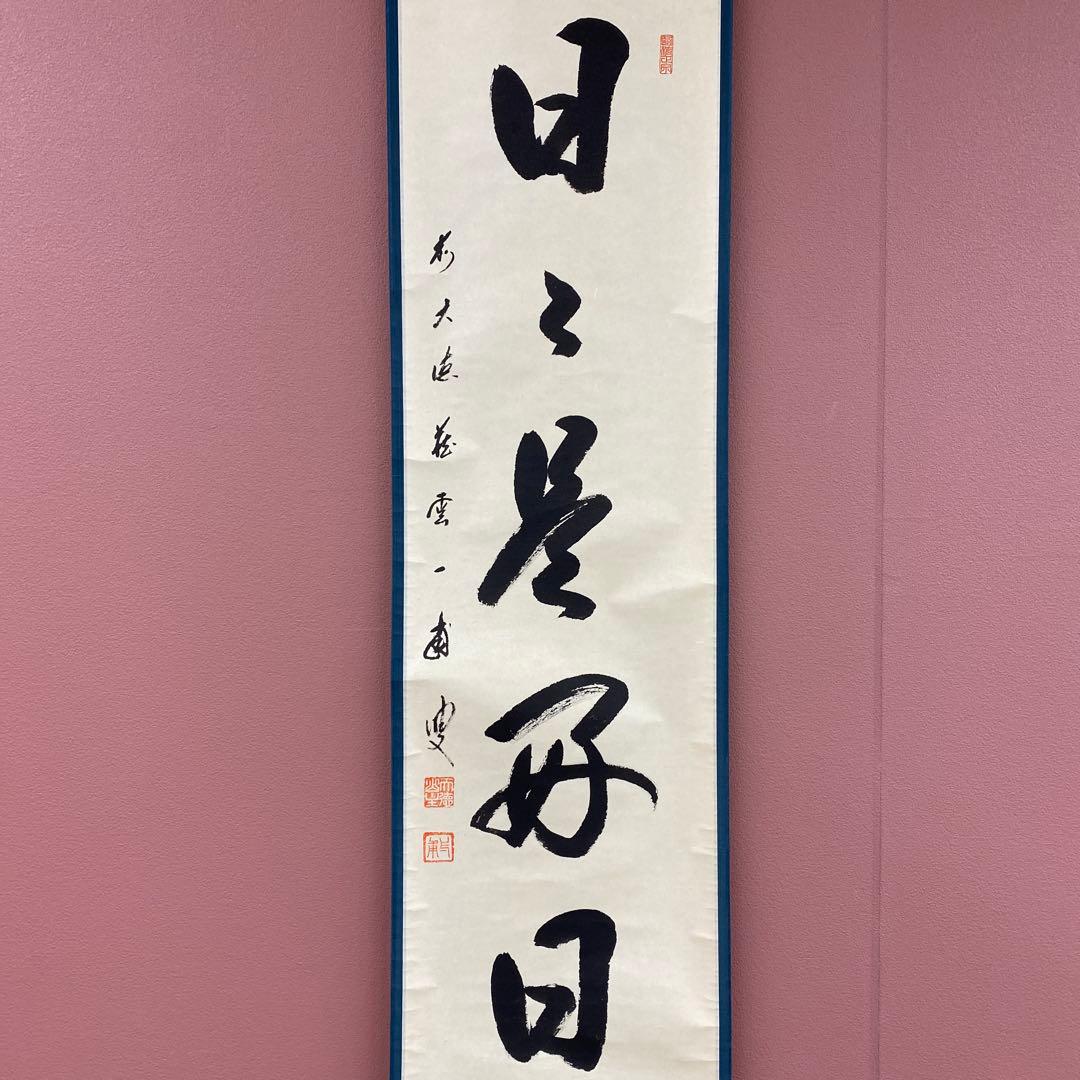 日々是好日
前大徳蔵雲一甫叟